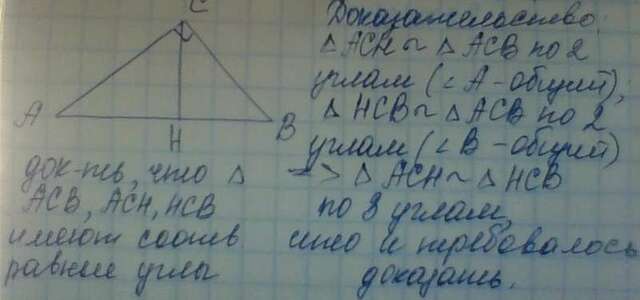 C
A
B
H
док-ть, что △
ACB, ACH, HCB
имеют соотв
равные углы
Доказательство:
△ ACH ~ △ ACB по 2
углам (∠A - общий),
△ HCB ~ △ ACB по 2
углам (∠B - общий)
=> △ ACH ~ △ HCB
по 3 углам,
что и требовалось
доказать.